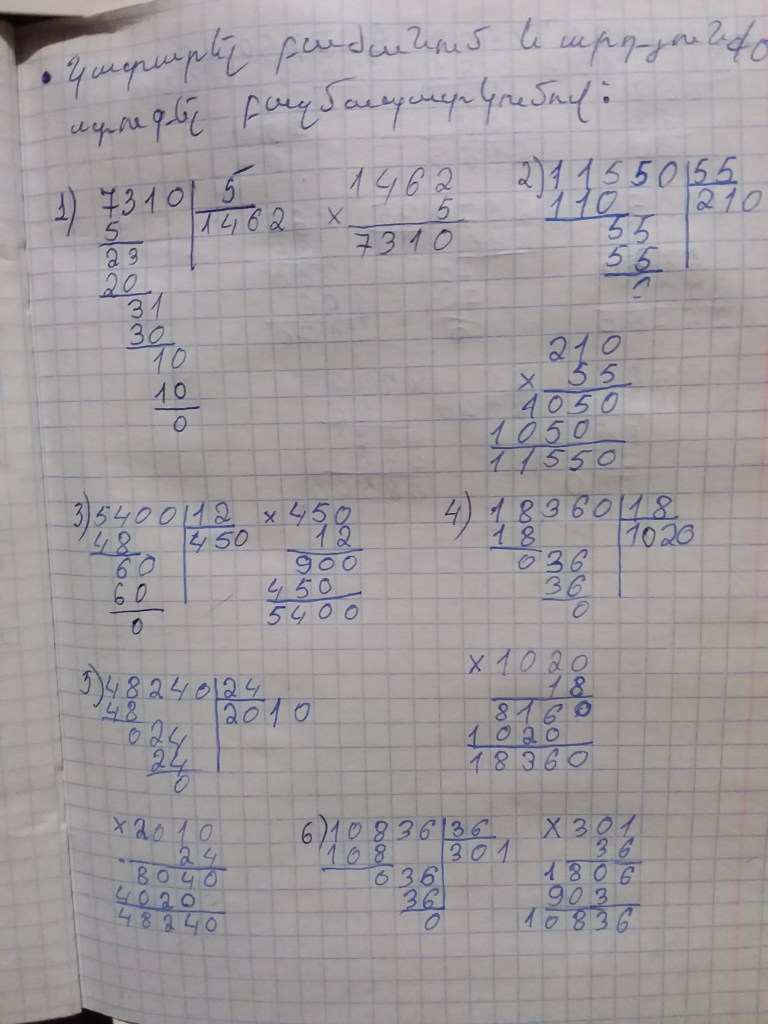 • Կատարել բաժանում և արդյունքը
ստուգել բազմապատկումով:
1) 7310 5
1462
5
23
20
31
30
10
10
0
1462
× 5
7310
2) 11550 55
110 210
55
55
0
210
× 55
1050
1050
11550
3) 5400 12
48 450
60
60
0
× 450
12
900
450
5400
4) 18360 18
18 1020
036
36
0
× 1020
18
8160
1020
18360
5) 48240 24
48 2010
024
24
0
× 2010
24
8040
4020
48240
6) 10836 36
108 301
036
36
0
× 301
36
1806
903
10836